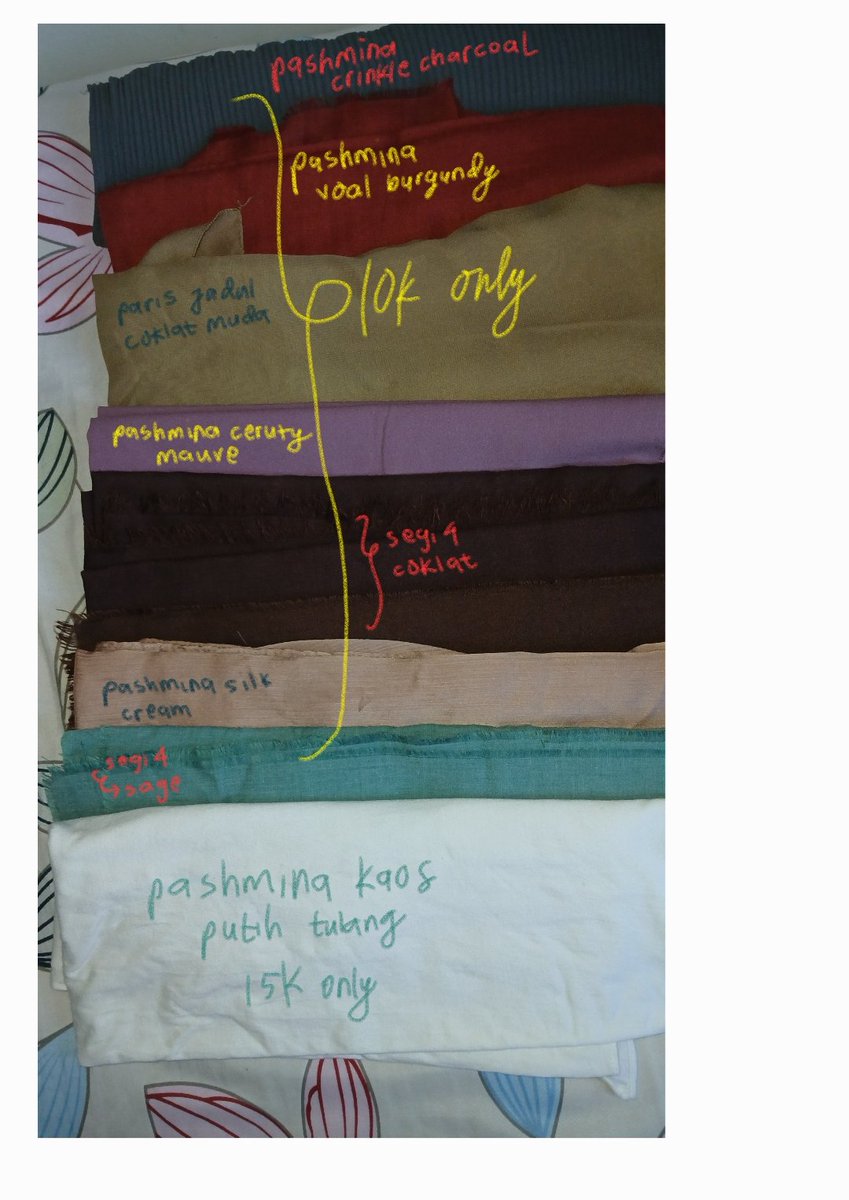 pashmina
crinkle charcoal
pashmina
voal burgundy
10k only
paris jadul
coklat muda
pashmina ceruty
mauve
segi 4
coklat
pashmina silk
cream
segi 4
sage
pashmina kaos
putih tulang
15K only